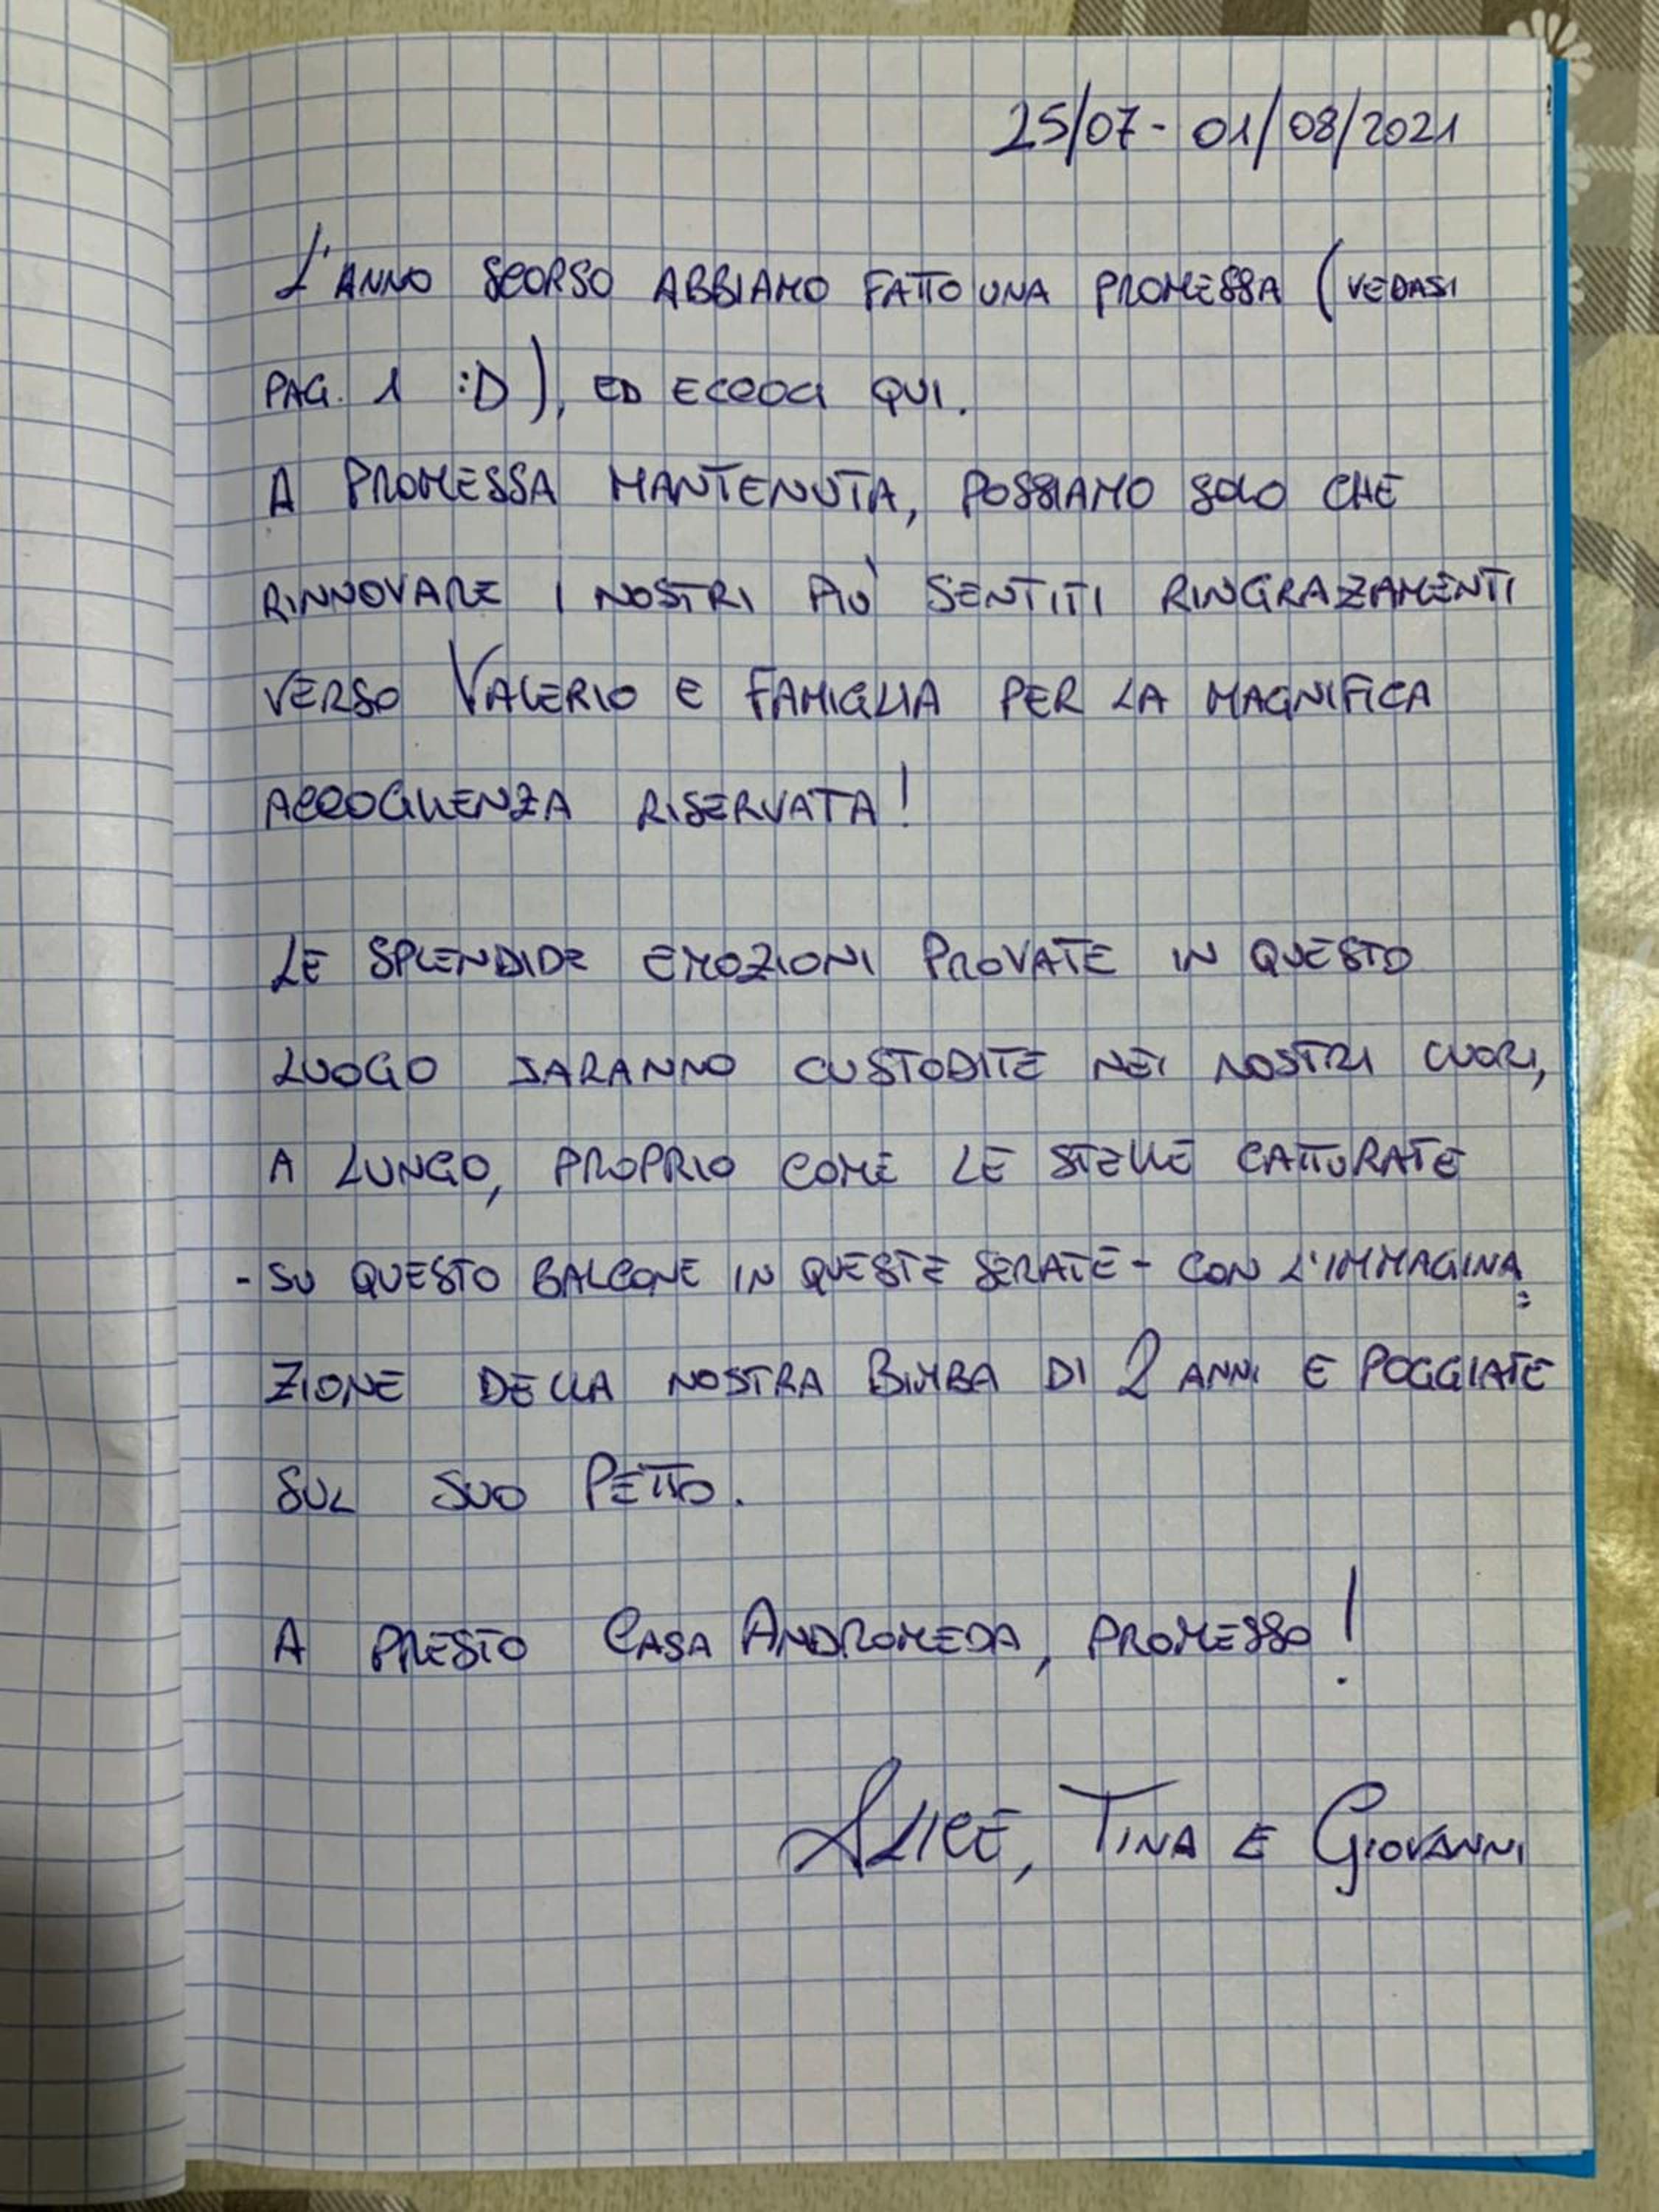 25/07 - 01/08/2021
L'ANNO SCORSO ABBIAMO FATTO UNA PROMESSA (VEDASI
PAG. 1 :D), ED ECCOCI QUI.
A PROMESSA MANTENUTA, POSSIAMO SOLO CHE
RINNOVARE I NOSTRI PIÙ SENTITI RINGRAZIAMENTI
VERSO VALERIO E FAMIGLIA PER LA MAGNIFICA
ACCOGLIENZA RISERVATA!
LE SPLENDIDE EMOZIONI PROVATE IN QUESTO
LUOGO SARANNO CUSTODITE NEI NOSTRI CUORI,
A LUNGO, PROPRIO COME LE STELLE CATTURATE
- SU QUESTO BALCONE IN QUESTE SERATE - CON L'IMMAGINA=
ZIONE DELLA NOSTRA BIMBA DI 2 ANNI E POGGIATE
SUL SUO PETTO.
A PRESTO CASA ANDROMEDA, PROMESSO!
ALICE, TINA E GIOVANNI